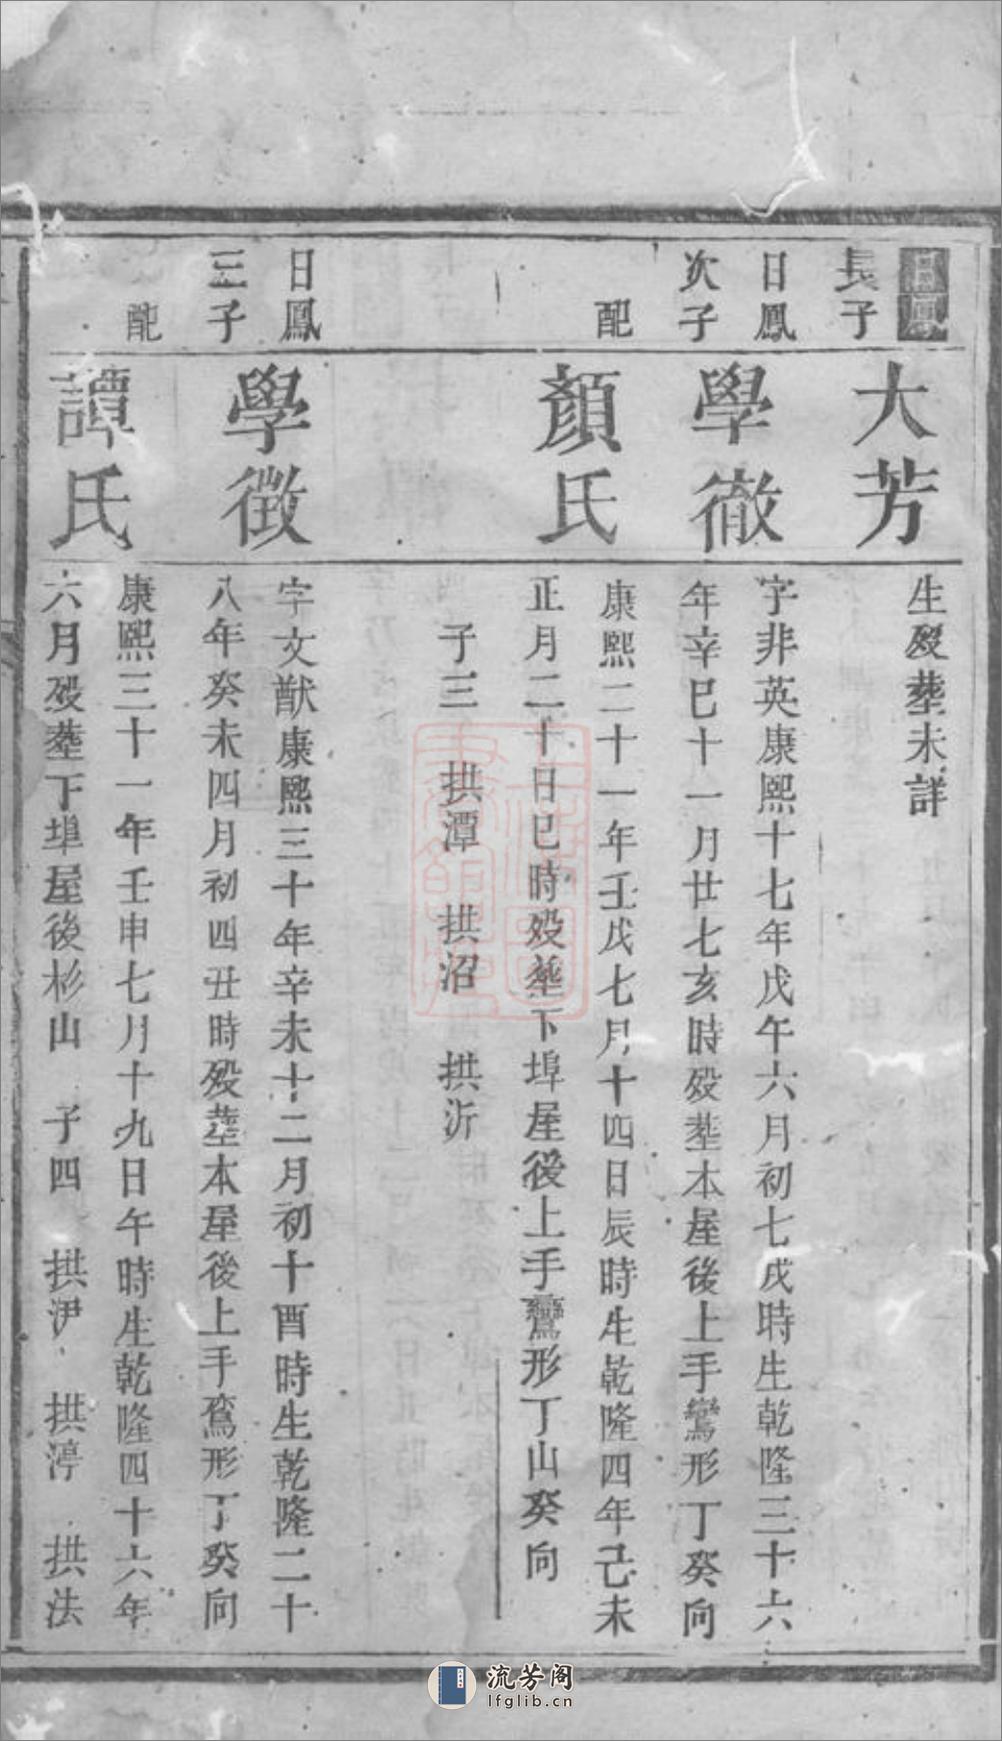 長子
大芳
生歿塟未詳
日鳳
次子
學徹
字非英康熙十七年戊午六月初七戌時生乾隆三十六
年辛巳十一月廿七亥時歿塟本屋後上手鸞形丁癸向
配
顏氏
康熙二十一年壬戌七月十四日辰時生乾隆四年己未
正月二十日巳時歿塟下埠屋後上手鸞形丁山癸向
子三 拱潭 拱沼 拱沂
日鳳
三子
學徴
字文猷康熙三十年辛未十二月初十酉時生乾隆二十
八年癸未四月初四丑時歿塟本屋後上手鵉形丁癸向
配
譚氏
康熙三十一年壬申七月十九日午時生乾隆四十六年
六月歿塟下埠屋後杉山 子四 拱浉 拱渟 拱法
流芳阁
lfglib.cn